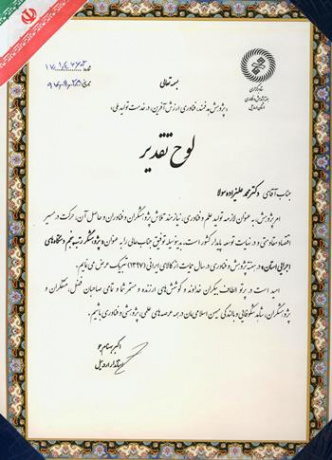 بسمه تعالی
«پژوهش هدفمند، فناوری ارزش آفرین، در خدمت تولید ملی»
لوح تقدیر
جناب آقای دکتر محمد علیزاده سولا
امر پژوهش، به عنوان لازمه تولید علم و فناوری، نیازمند تلاش پژوهشگران و فناوران و حاصل آن، حرکت در مسیر
اقتصاد مقاومتی و در نهایت توسعه پایدار کشور است. بدینوسیله توفیق جنابعالی را به عنوان «پژوهشگر رتبه پنجم دستگاه‌های
اجرایی استان» در هفته پژوهش و فناوری در سال حمایت از کالای ایرانی (۱۳۹۷) تبریک عرض می‌نمایم.
امید است در پرتو الطاف بیکران خداوند و کوشش‌های ارزنده و مستمر شما و تمامی صاحبان فضل، متفکران و
پژوهشگران، شاهد شکوفایی و بالندگی میهن اسلامی‌مان در همه عرصه‌های علمی، پژوهشی و فناوری باشیم.
اکبر بهنام جو
استاندار اردبیل